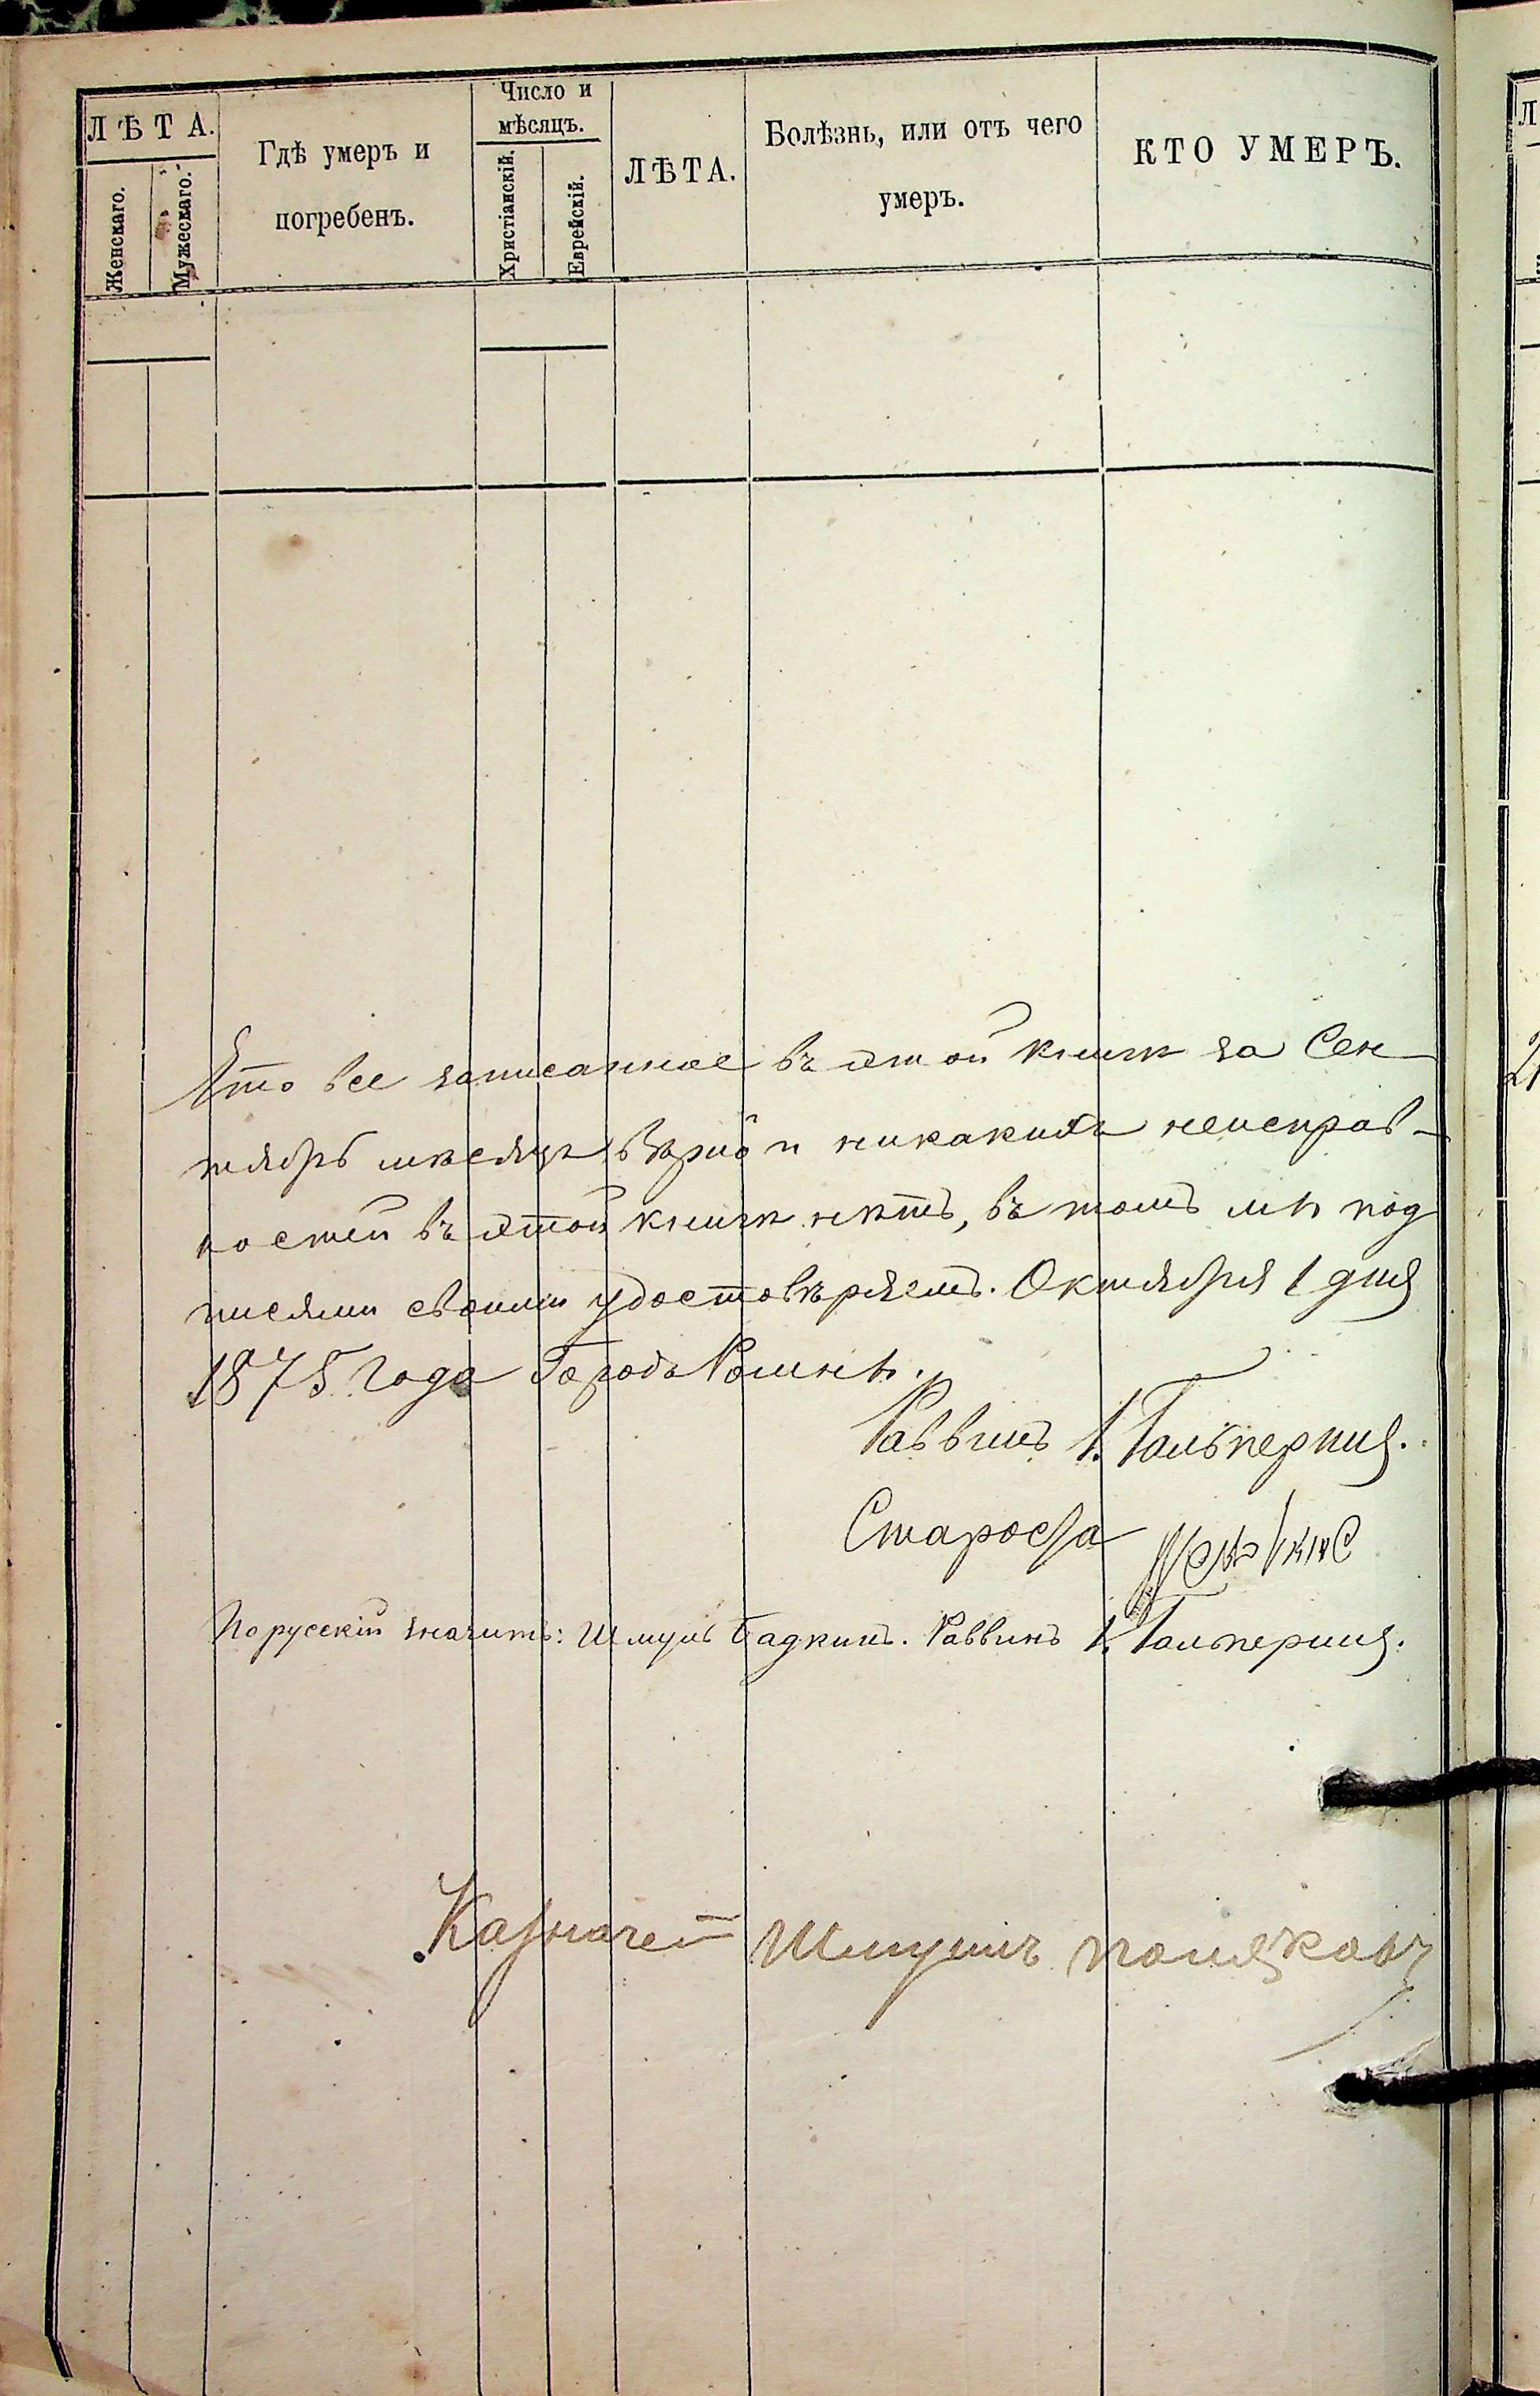 ЛѢТА.
Женскаго.
Мужескаго.
Гдѣ умеръ и
погребенъ.
Число и
мѣсяцъ.
Христіанскій.
Еврейскій.
ЛѢТА.
Болѣзнь, или отъ чего
умеръ.
КТО УМЕРЪ.
Что все записанное въ этой книгѣ за Сен-
тябрь мѣсяцъ вѣрно и никакихъ неисправ-
ностей въ этой книгѣ нѣтъ, въ томъ мы под
писями своими удостовѣряемъ. Октября 1 дня
1875 года Городъ Ромны.
Раввинъ І. Гальперинъ.
Староста
По русскій значитъ: Шмуль Бадкинъ. Раввинъ І. Гальперинъ.
Казначей Шмуилъ поляковъ